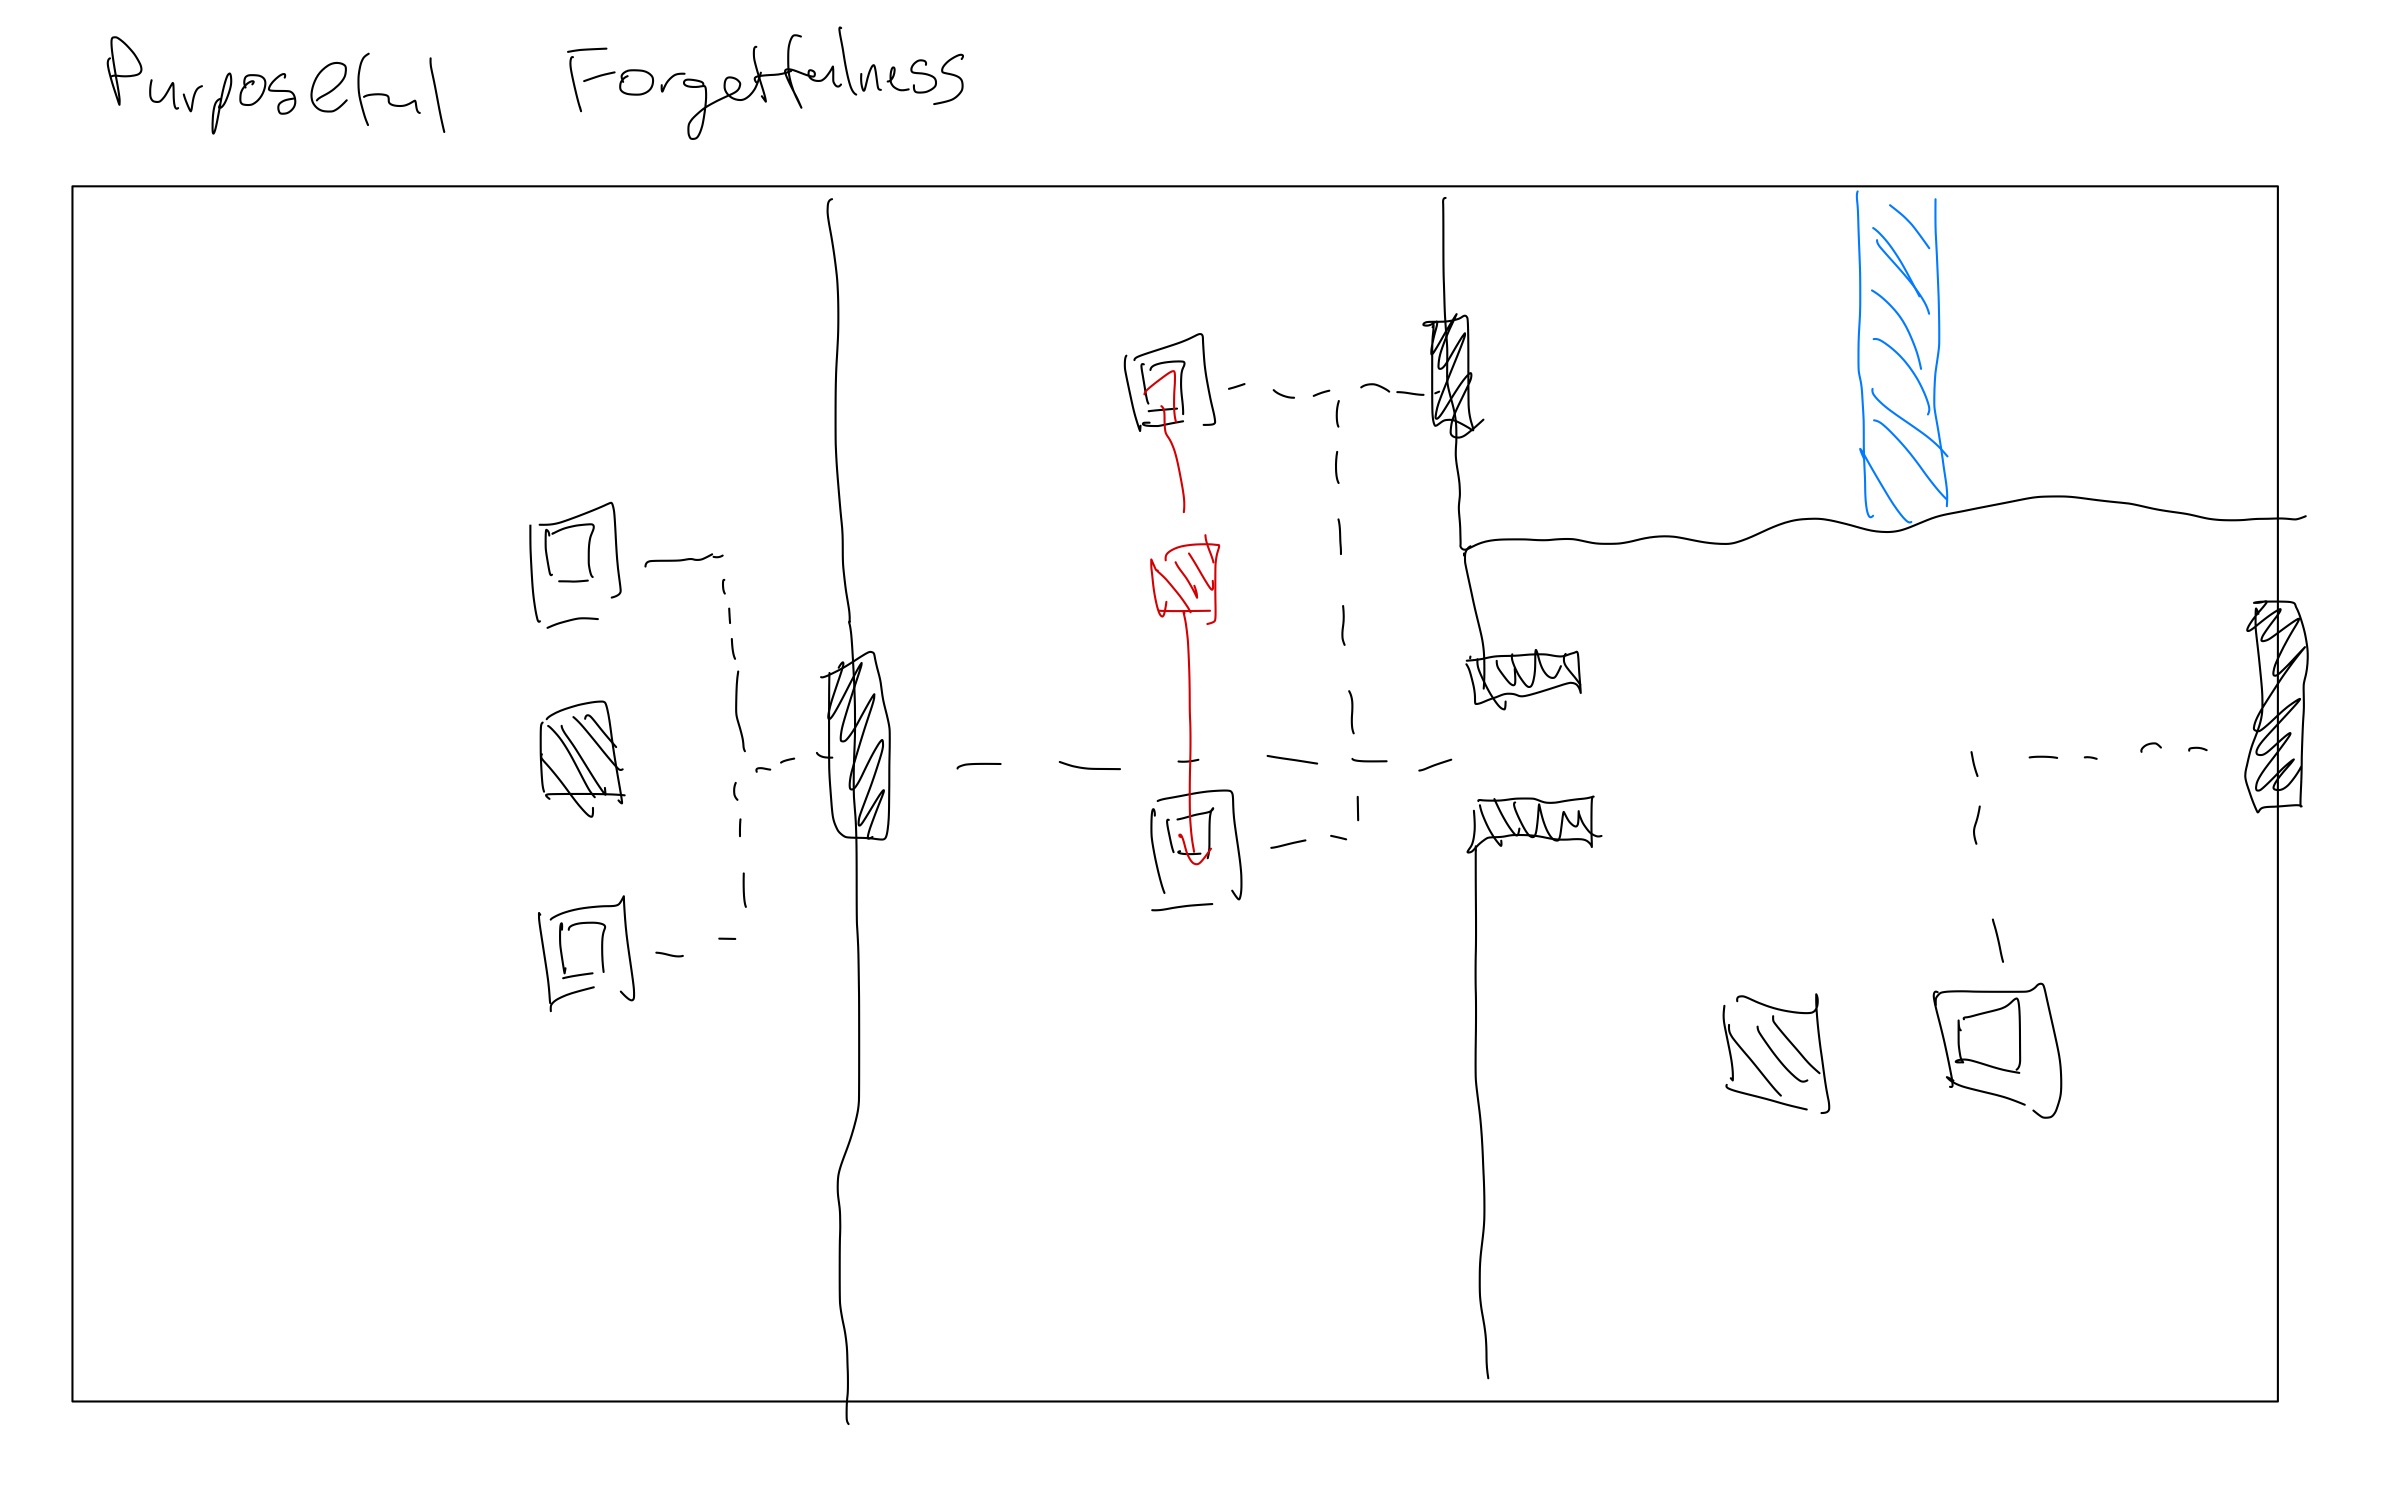 Purposeful Forgetfulness